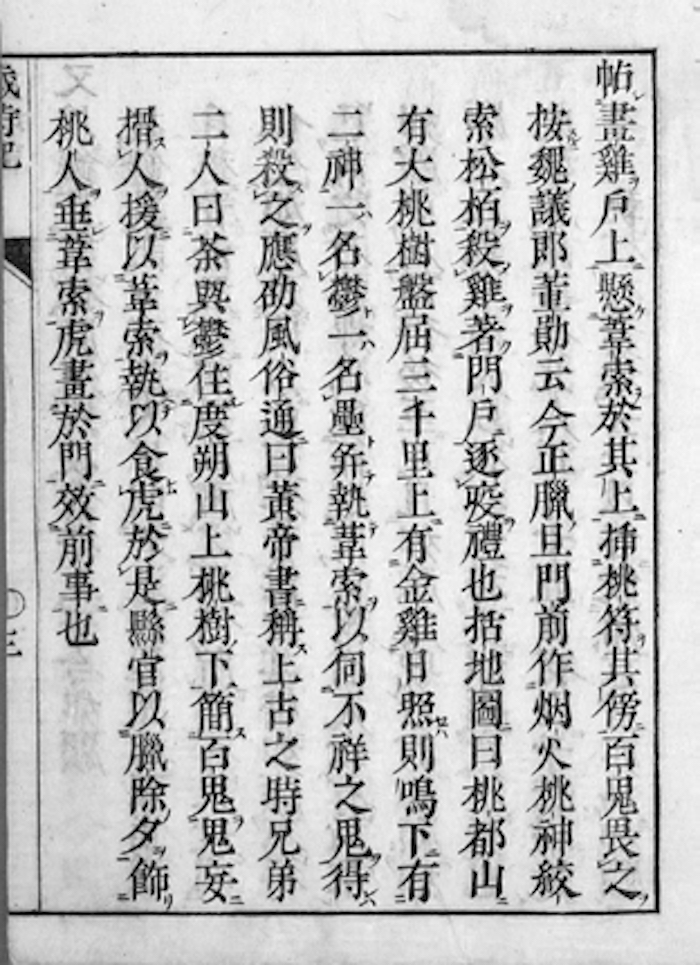 帖畫雞戶上懸葦索於其上揷桃符其傍百鬼畏之
按魏議郎董勛云今正臘旦門前作烟火桃神絞
索松栢殺雞著門戶逐疫禮也括地圖曰桃都山
有大桃樹盤屈三千里上有金雞日照則鳴下有
二神一名鬱一名壘幷執葦索以伺不祥之鬼得
則殺之應劭風俗通曰黃帝書稱上古之時兄弟
二人曰荼與鬱住度朔山上桃樹下簡百鬼鬼妄
搢人援以葦索執以食虎於是縣官以臘除夕飾
桃人垂葦索虎畫於門效前事也
歲時記
三